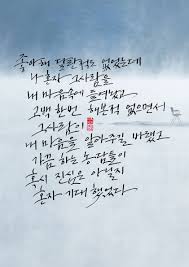 좋아해 달란적도 없었는데
나 혼자 그사람을
내 마음속에 들여놓고
고백 한번 해본적 없으면서
그사람이
내 마음을 알아주길 바랬고
가끔 하는 농담들이
혹시 진심은 아닐지
혼자 기대 했었다